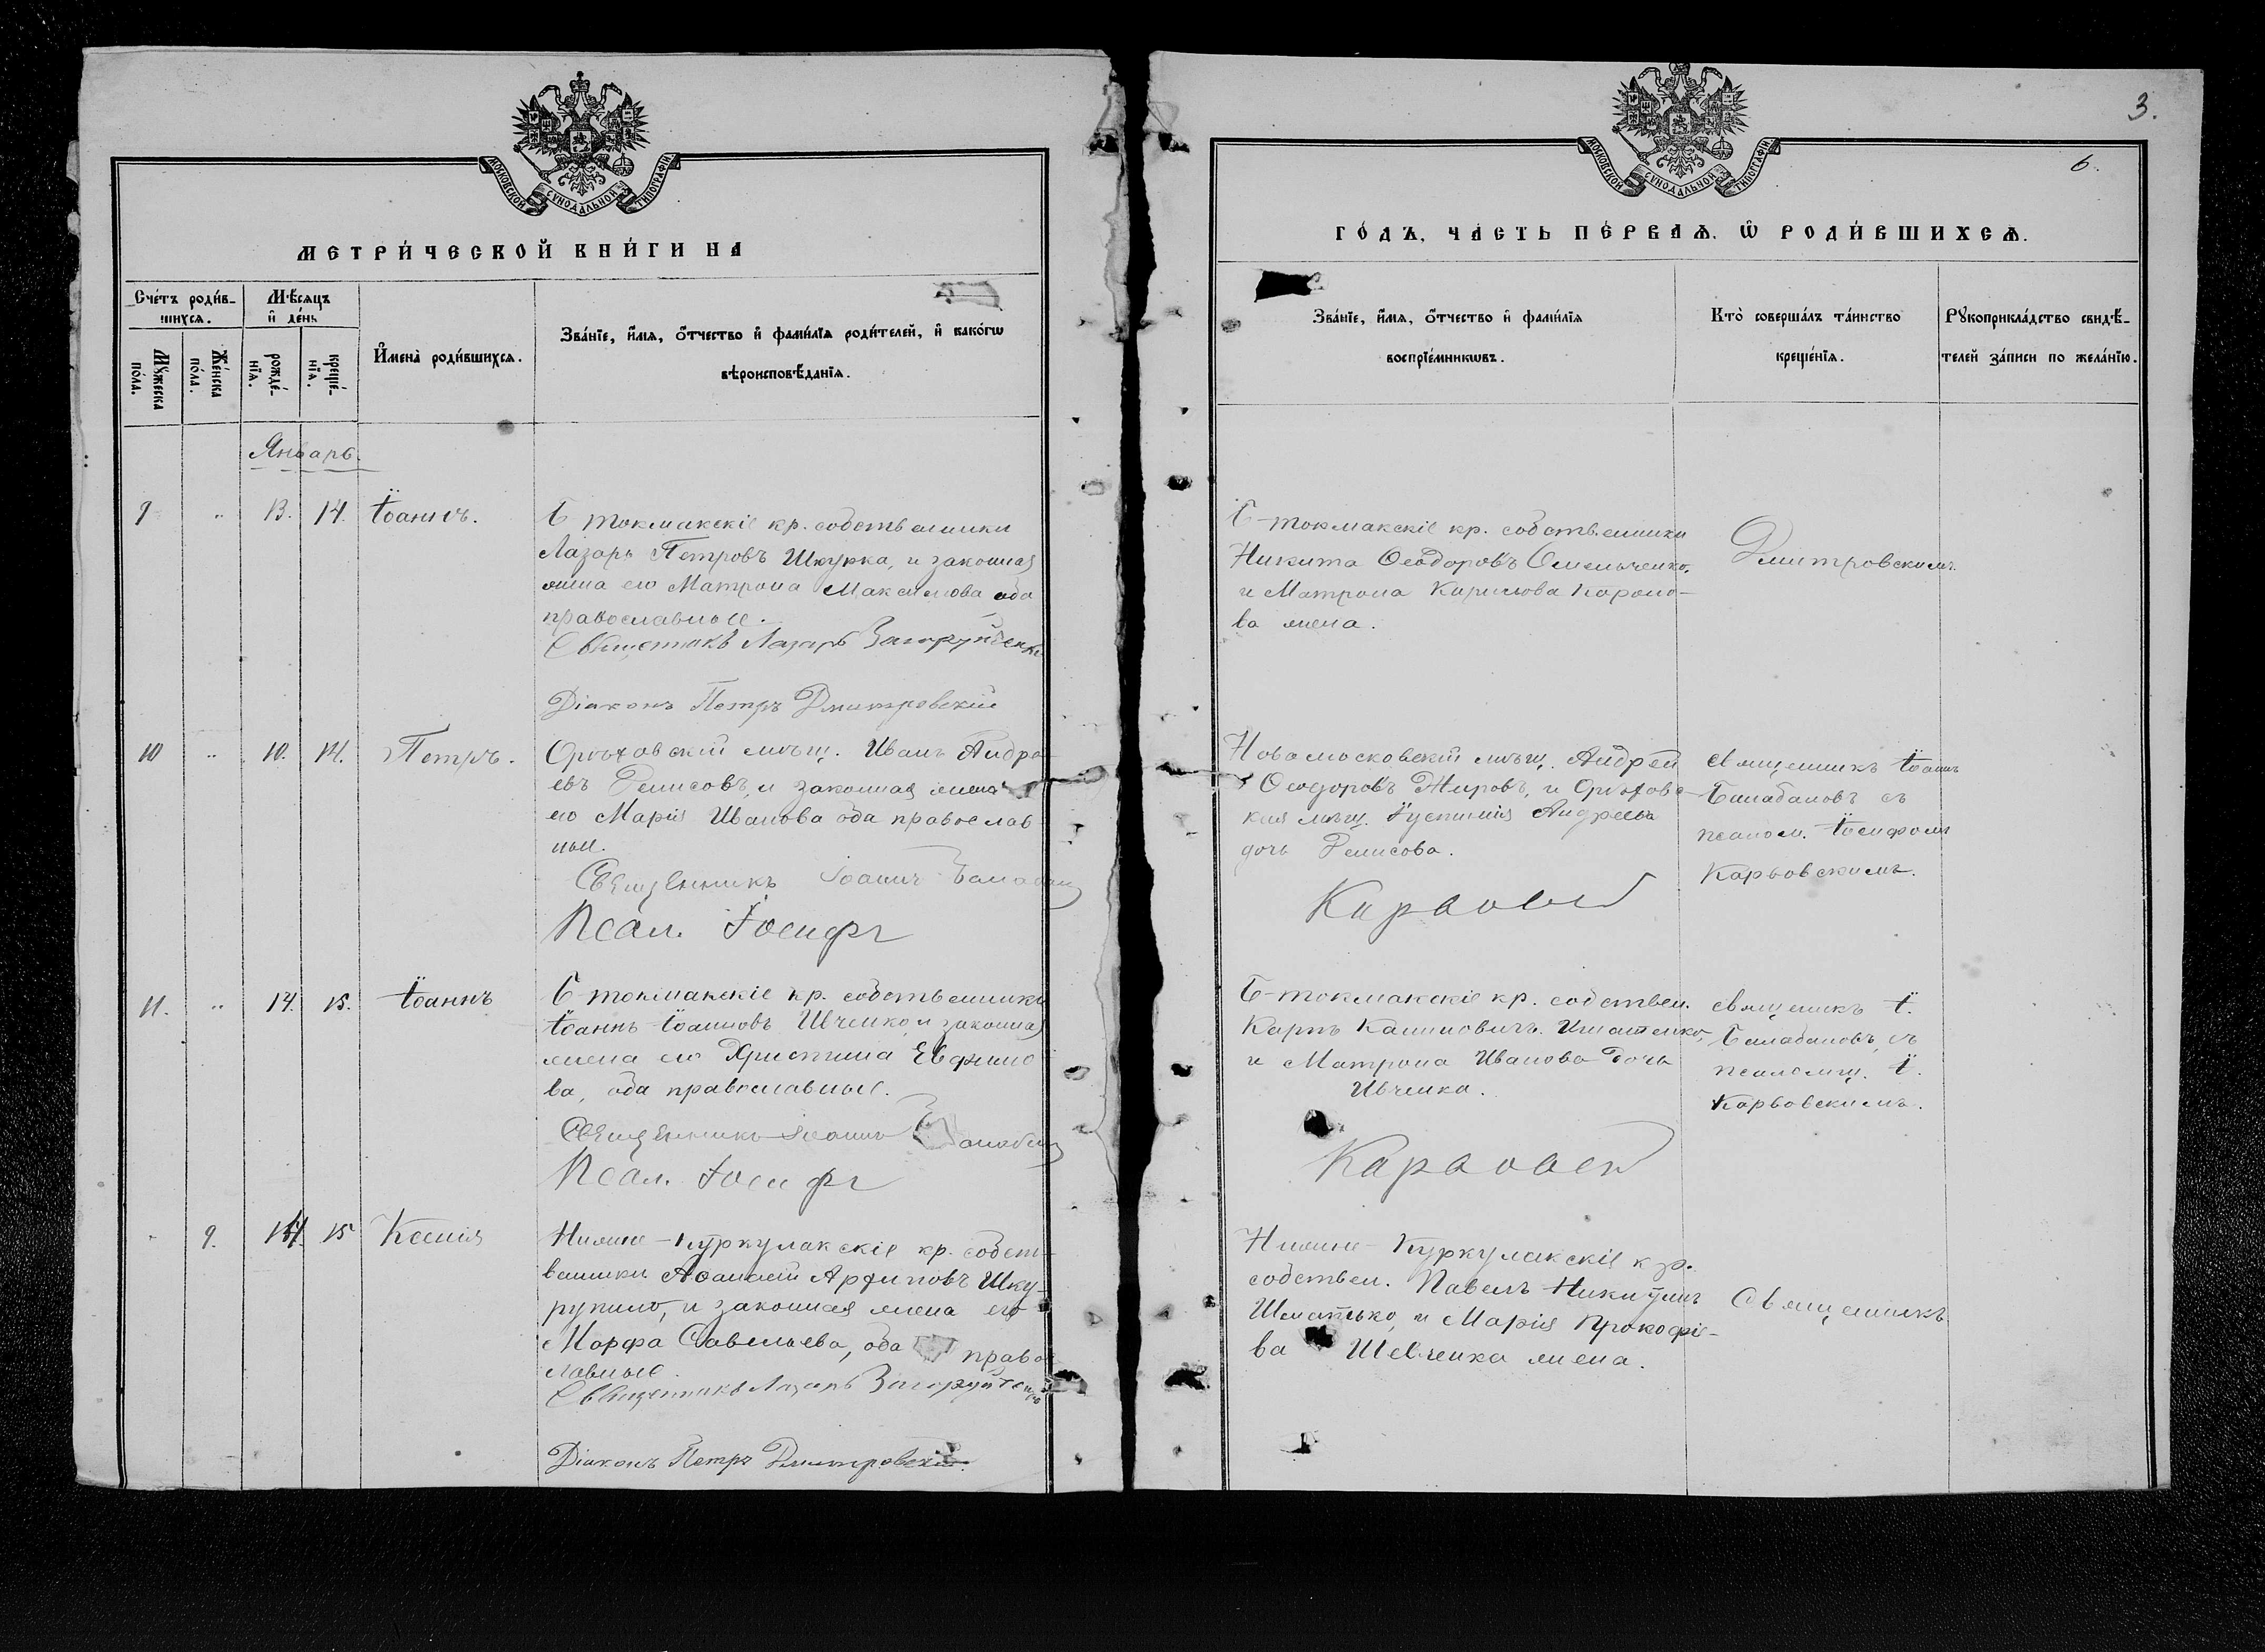 МОСКОВСКОЙ СѴНОДАЛЬНОЙ ТИПОГРАФІИ
МЕТРИ́ЧЕСКОЙ КНИ́ГИ НА
Сче́тъ роди́в-
шихсѧ.
Мѣ́сѧцъ
и҆ де́нь
Мꙋ́жеска
по́ла.
Же́нска
по́ла.
рожде́-
нїѧ.
креще́-
нїѧ.
И҆мена̀ роди́вшихсѧ.
Зва́нїе, и҆́мѧ, ѻ҆́тчество и҆ фами́лїѧ роди́телей, и҆ како́гѡ
вѣроисповѣ́данїѧ.
Январь.
9 " 13. 14. Іоаннъ.
Б токмакскіе кр. собственники
Лазарь Петровъ Шкурка, и законная
жена его Матрона Максимова оба
православные.
Священникъ Лазарь
Діаконъ Петръ Дмитровскій
10 " 10. 14. Петръ.
Орѣховскій мѣщ. Иванъ Андре
евъ Денисовъ, и законная жена
его Марія Иванова оба православ
ные.
Священникъ Іоаннъ Балабан
Псал. Іосифъ
11. " 14. 15. Іоаннъ
Б токмакскіе кр. собственники
Іоаннъ Іоанновъ Ивченко, и законная
жена его Христина Евфимо
ва, оба православные.
Священникъ Іоаннъ Балабан
Псал. Іосифъ
" 9. 14. 15 Ксенія
Нижне-Куркулакскіе кр. собст-
венники Аѳанасій Архиповъ Шку-
рупило, и законная жена его
Марфа Савельева, оба право
лавные.
Священникъ Лазарь
Діаконъ Петръ Дмитровскій.
3.
6.
МОСКОВСКОЙ СѴНОДАЛЬНОЙ ТИПОГРАФІИ
ГО́ДЪ, ЧА́СТЬ ПЕ́РВАѦ, Ѡ҆ РОДИ́ВШИХСѦ.
Зва́нїе, и҆́мѧ, ѻ҆́тчество и҆ фами́лїѧ
воспрїе́мникѡвъ.
Кто̀ соверша́лъ та́инство
креще́нїѧ.
Рꙋкоприкла́дство свидѣ́-
телей за́писи по жела́нїю.
Б-токмакскіе кр. собственники
Никита Ѳеодоровъ Омельченко,
и Матрона Кирилова
ва жена.
Дмитровскимъ.
Новомосковскій мѣщ. Андрей
Ѳеодоровъ Жировъ, и Орѣховс-
кая мѣщ. Іустинія Андреева
дочь Денисова.
Карвовск
священникъ Іоаннъ
Балабановъ съ
псалом. Іосифомъ
Карвовскимъ.
Б-токмакскіе кр. собствен.
Карпъ
и Матрона Иванова дочь
Ивченка.
Карвовск
священникъ І.
Балабановъ, съ
псаломщ. І.
Карвовскимъ.
Нижне-Куркулакскіе кр.
собствен. Павелъ Никитинъ
Шматько, и Марія Прокофіе-
ва Шевченка жена.
Священникъ